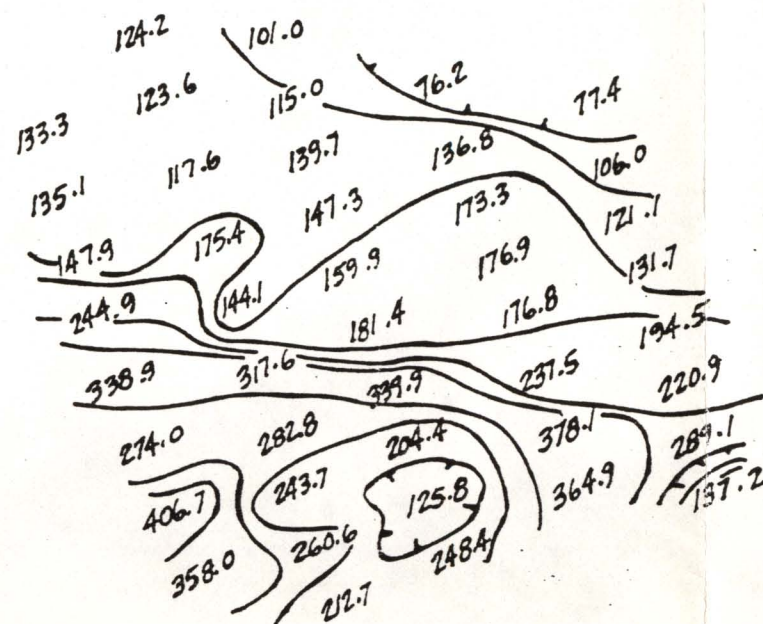 124.2 101.0
123.6 115.0 76.2 77.4
133.3 117.6 139.7 136.8 106.0
135.1 147.3 173.3 121.1
147.9 175.4 159.9 176.9 131.7
244.9 144.1 181.4 176.8 194.5
338.9 317.6 339.9 237.5 220.9
274.0 282.8 204.4 378.1 289.1
406.7 243.7 125.8 364.9 137.2
358.0 260.6 248.4
212.7